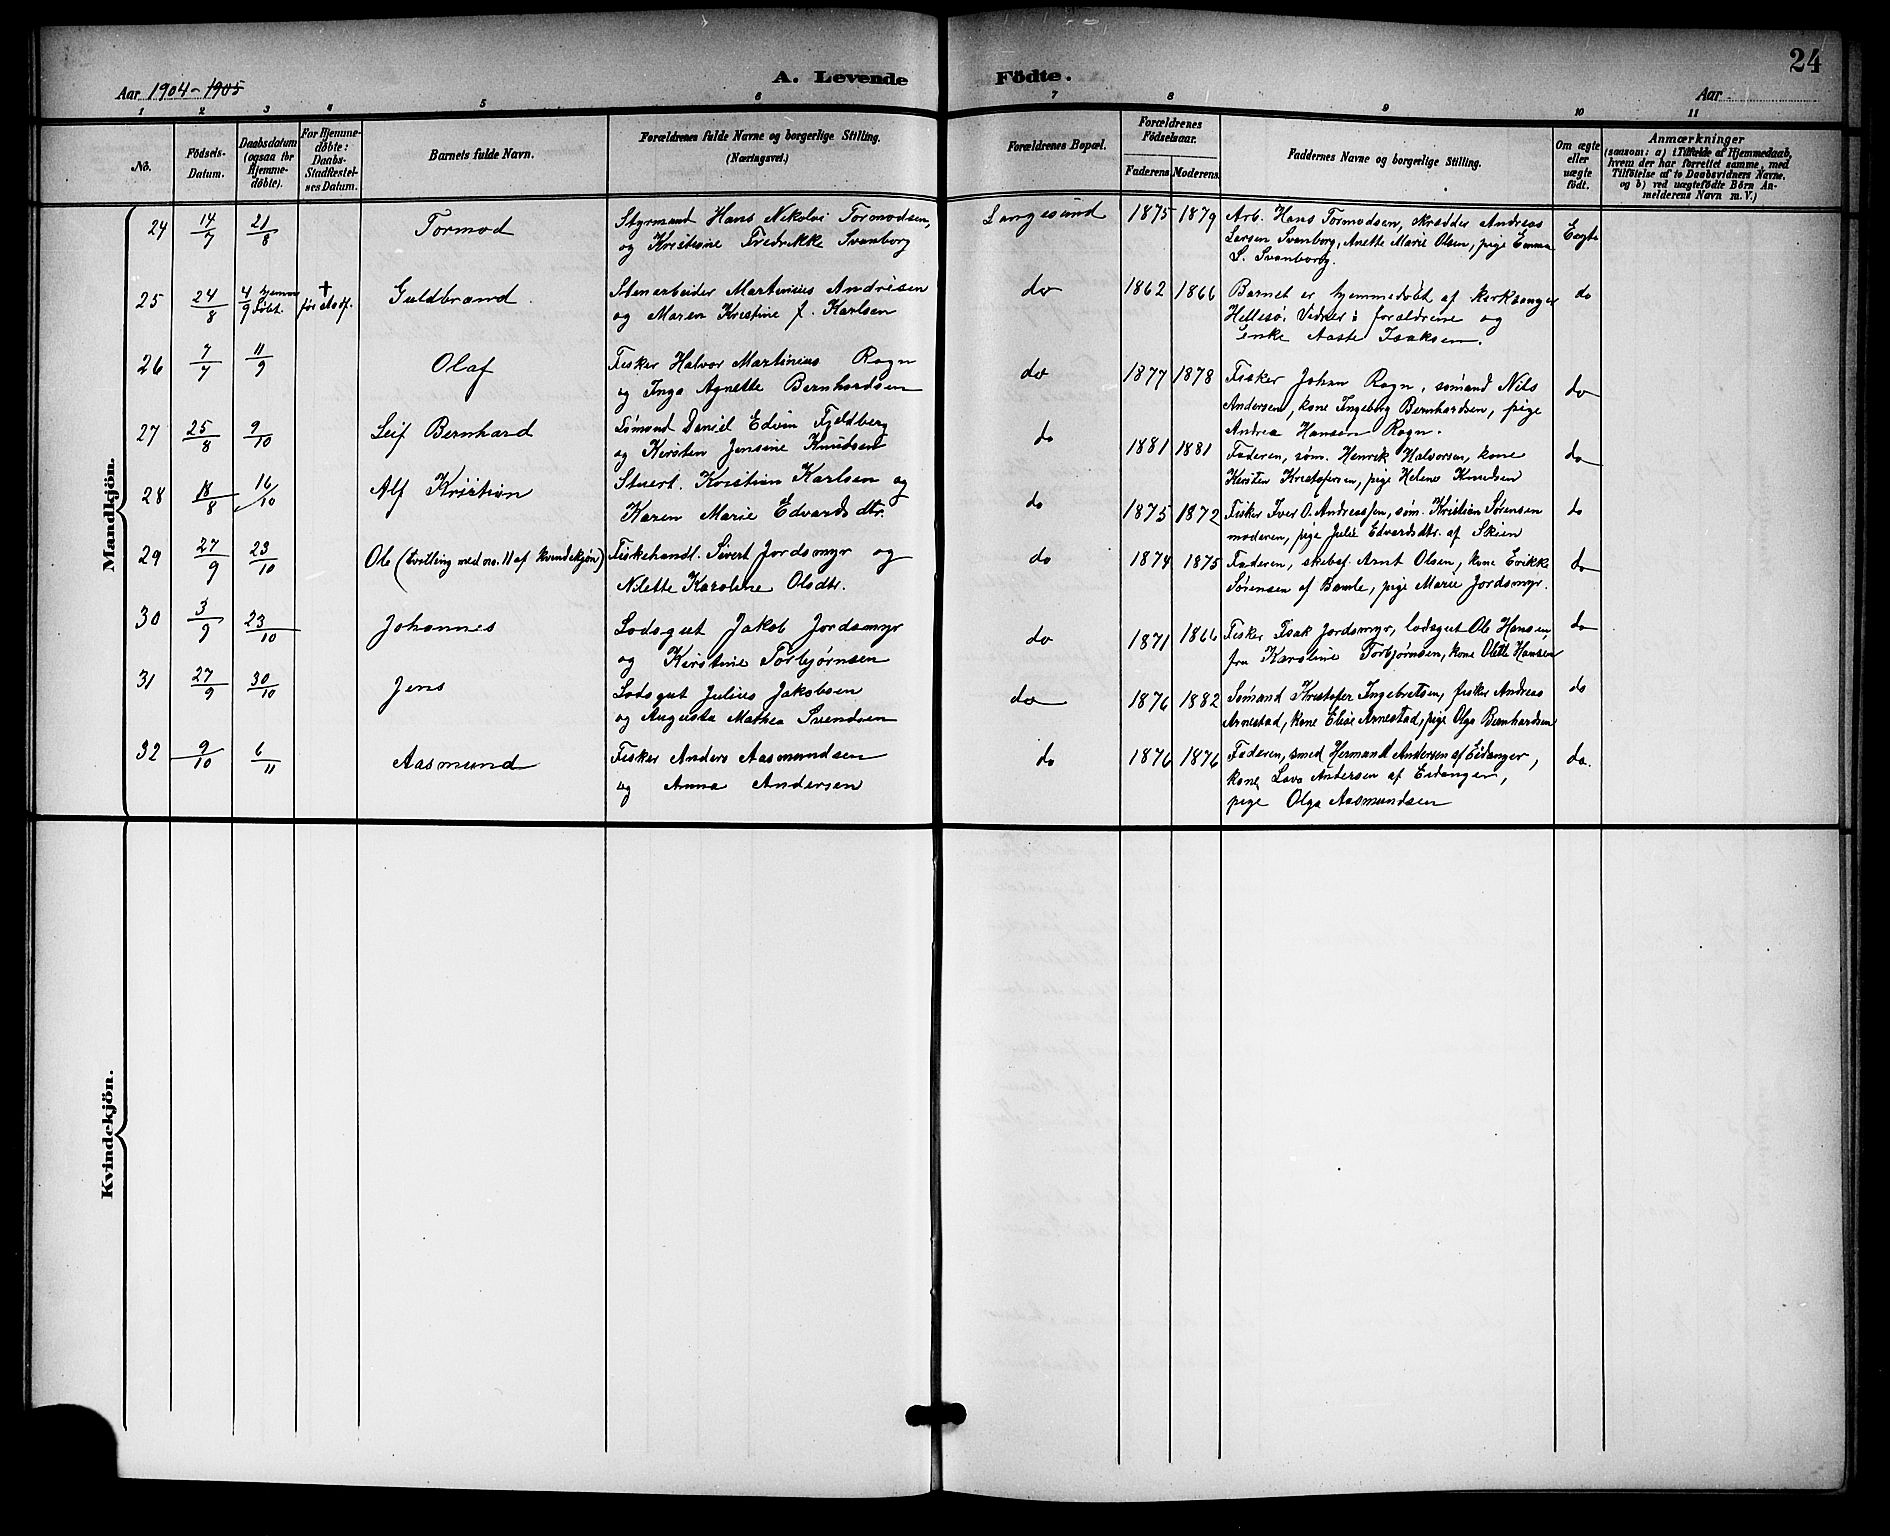 24
A. Levende Födte.
Aar 1904-1905
Aar
1 2 3 4 5 6 7 8 9 10 11
No.
Födsels-Datum.
Daabsdatum (ogsaa for Hjemme-døbte).
For Hjemme-døbte: Daabs-Stadfæstel-ses Datum.
Barnets fulde Navn.
Forældrenes fulde Navne og borgerlige Stilling.
(Næringsvei.)
Forældrenes Bopæl.
Forældrenes Födselsaar.
Faderens Moderens
Faddernes Navne og borgerlige Stilling.
Om ægte eller uægte født.
Anmærkninger
(saasom: a) i Tilfælde af Hjemmedaab,
hvem der har forrettet samme, med
Tilföielse af to Daabsvidners Navne.
og b) ved uægtefödte Börn An-
melderens Navn m. V.)
Mandkjön.
24 14/7 21/8 Tormod Styrmand Hans Nikolai Tormodsen, Langesund 1875 1879 Arb. Hans Tormodsen, skrædder Andreas Eegte
og Kristiane Fredrikke Svanborg Larsen Svanborg, Anette Marie Olsen, pige Emma
S. Svanborg.
25 24/8 4/9 hjemmedøbt † før stadf. Guldbrand Stenarbeider Martinius Andrisen do 1862 1866 Barnet er hjemmedøbt af kirksanger do
og Maren Kristine f. Karlsen Hellesø, Vidner: forældrene og
enke Aaste Isaksen.
26 7/7 11/9 Olaf Fisker Halvor Martinius Rogn do 1877 1878 Fisker Johan Rogn, sømand Nils do
og Inga Agnette Bernhardsen Andersen, kone Ingeborg Bernhardsen, pige
Andrea Hanson Rogn.
27 25/8 9/10 Leif Bernhard Sømand Daniel Edvin Fjeldberg do 1881 1881 Faderen, søm. Henrik Halvorsen, kone do
og Kirsten Jensine Knudsen Kirsten Kristofersen, pige Helene Knudsen
28 18/8 16/10 Alf Kristian Stuert. Kristian Karlsen og do 1875 1872 Fisker Iver O. Andreassen, søm. Kristian Sørensen do
Karen Marie Edvardsdtr. moderen, pige Julie Edvardsdtr. af Skien
29 27/9 23/10 Ole (tvilling med no. 11 af kvindekjøn) Fiskehandl. Sivert Jordsmyr og do 1874 1875 Faderen, skibsf. Arnt Olsen, kone Erikke do
Nilette Karoline Olsdtr. Sørensen af Bamle, pige Marie Jordsmyr.
30 3/9 23/10 Johannes Lodsgut Jakob Jordsmyr do 1871 1866 Fisker Isak Jordsmyr, lodsgut Ole Hansen, do
og Kirstine Torbjørnsen fru Karoline Torbjørnsen, kone Olette Hansen
31 27/9 30/10 Jens Lodsgut Julius Jakobsen do 1876 1882 Sømand Kristofer Ingebretsen, fisker Andreas do
og Augusta Mathea Svendsen Arnestad, kone Elise Arnestad, pige Olga Bernhardsen
32 9/10 6/11 Aasmund Fisker Anders Aasmundsen do 1876 1876 Faderen, smed Hermand Andersen af Eidanger, do.
og Anna Andersen kone Lava Andersen af Eidanger,
pige Olga Aasmundsen
Kvindekjön.